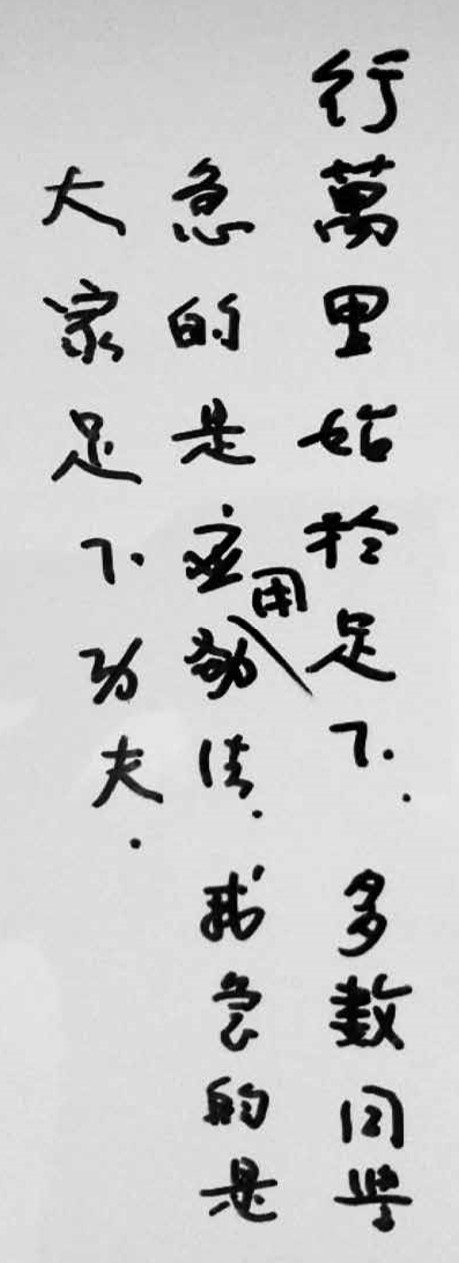 行萬里始於足下.多數同學
急的是应用勁法.我急的是
大家足下功夫.